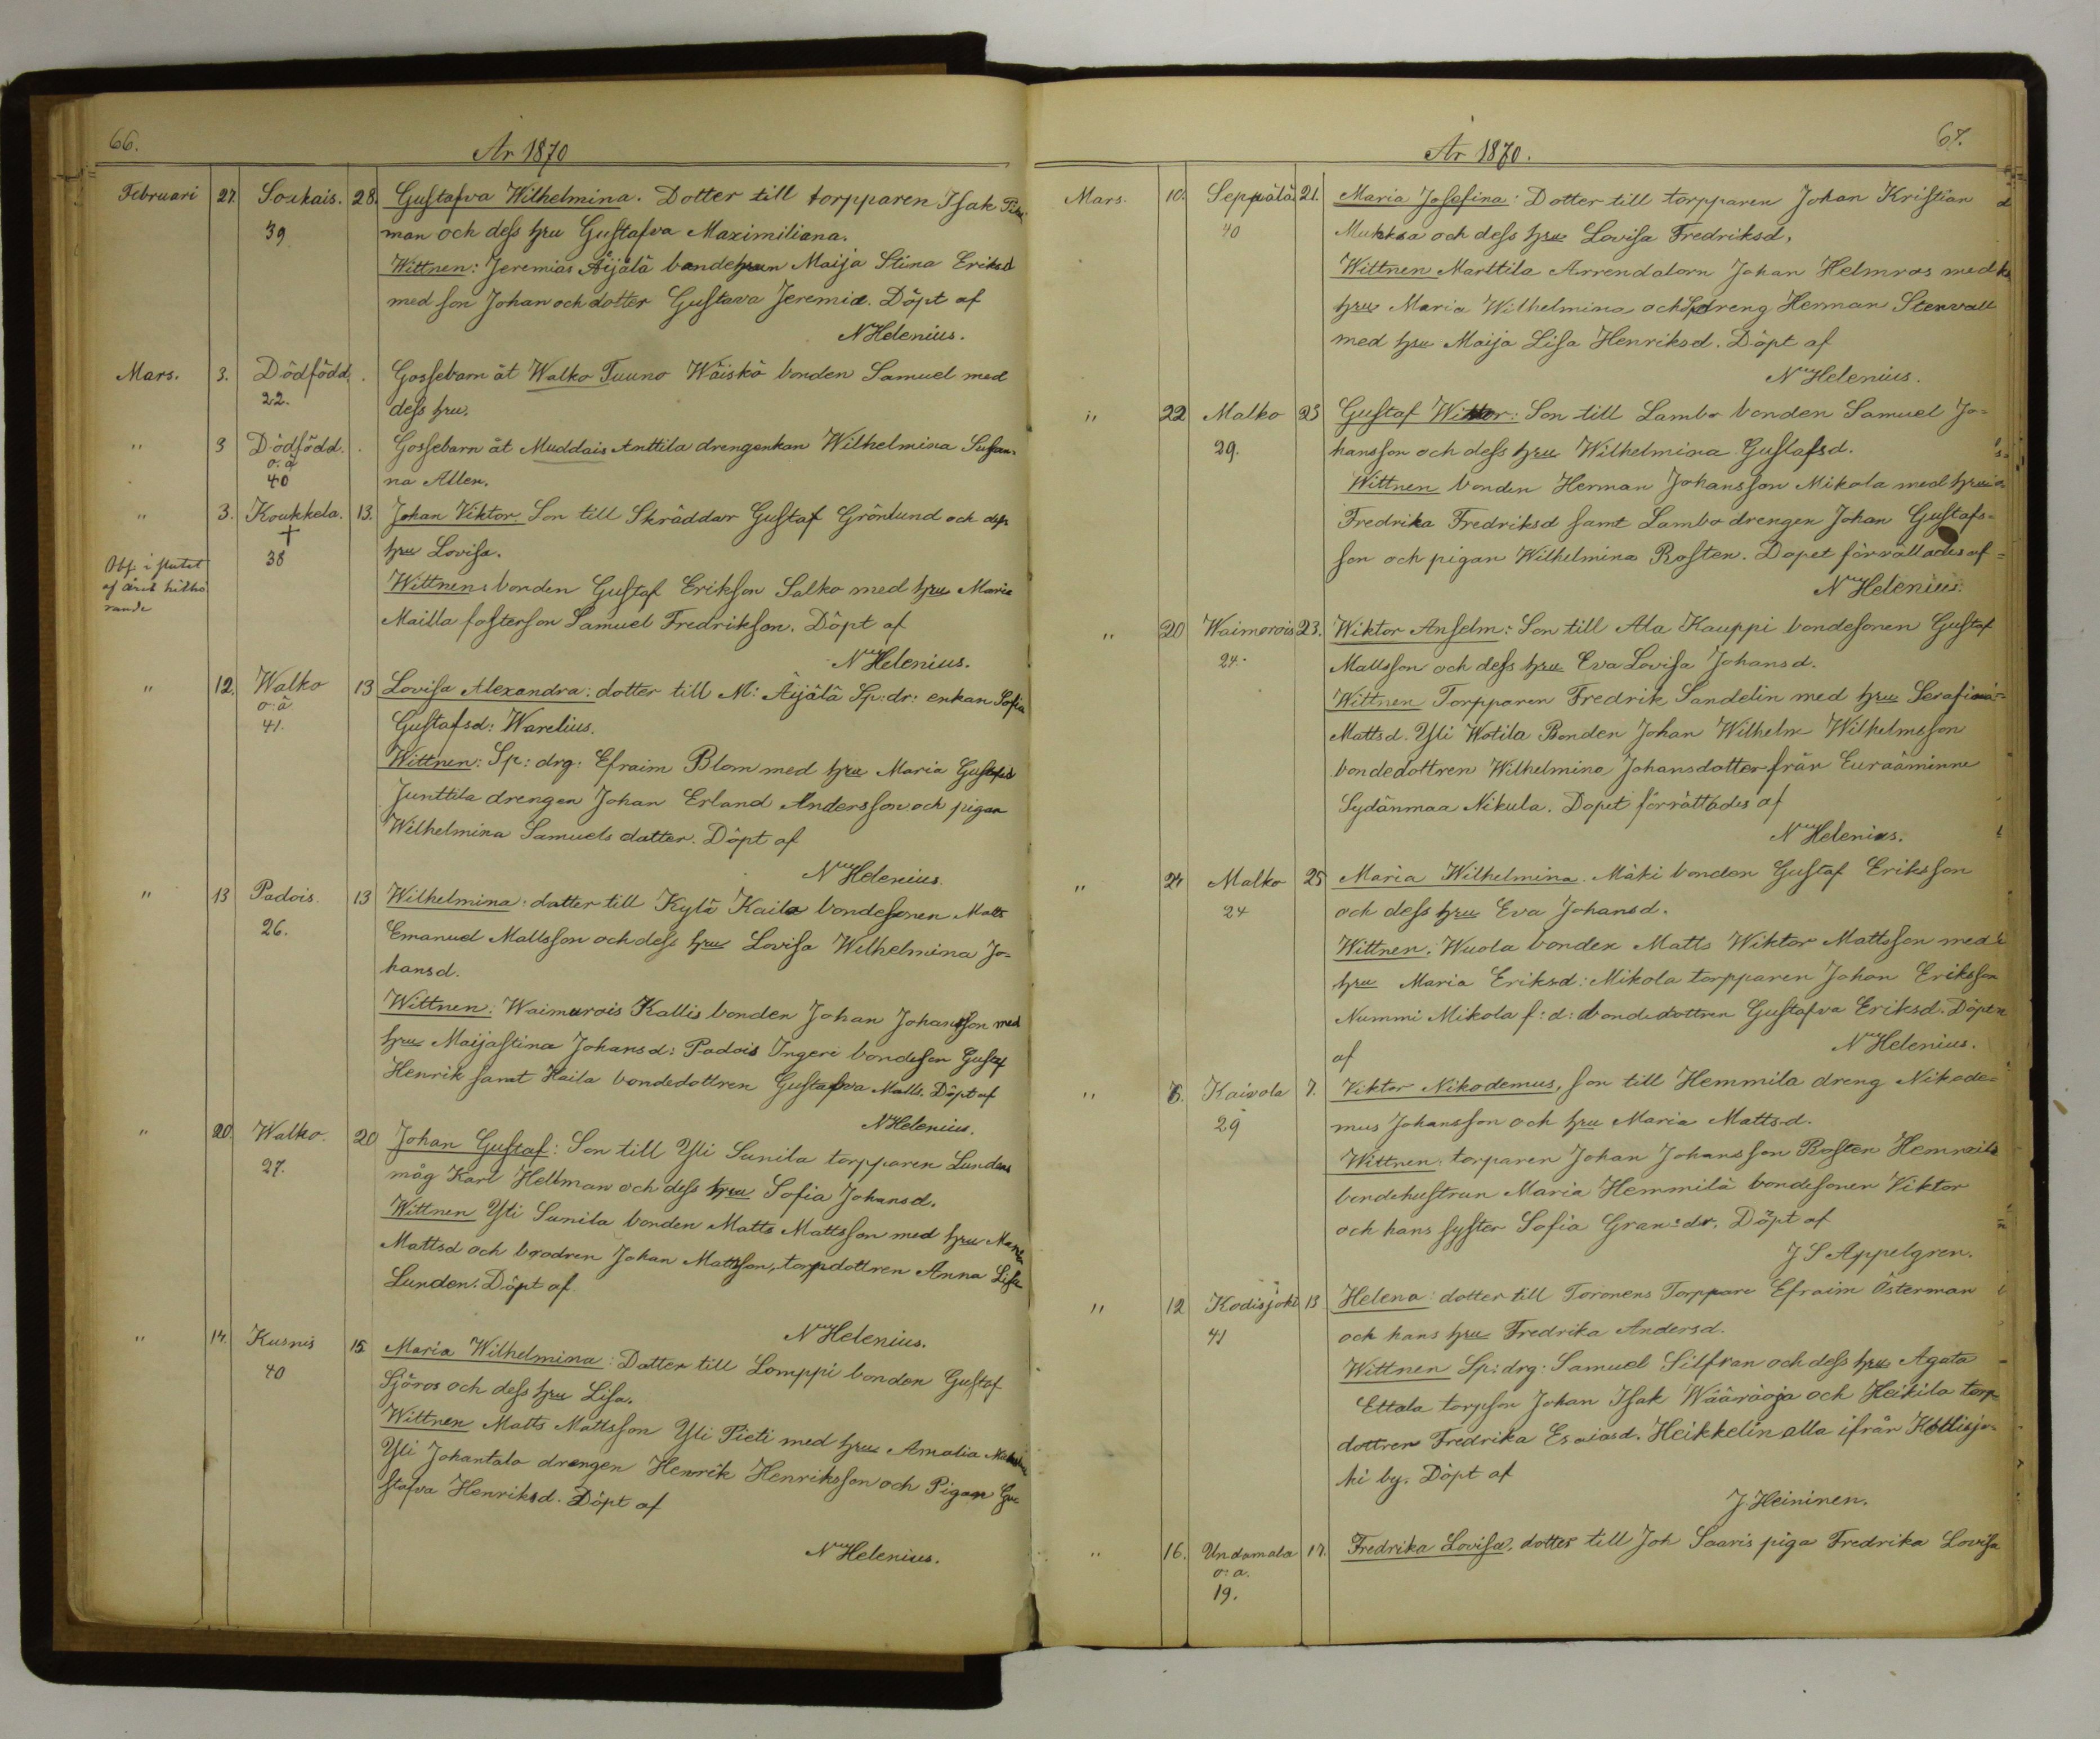 66.
År 1870
Februari 27. Soukais. 28. Gustafva Wilhelmina. Dotter till torpparen Isak
39 man och dess hru Gustafva Maximiliana.
Wittnen: Jeremias Äijälä bondehrun Maija Stina Eriksd
med son Johan och dotter Gustava Jeremid. Döpt af
N Helenius.
Mars. 3. Dödfödd. Gossebarn åt Walko Tuuno Wäiskö bonden Samuel med
22. dess hru.
" 3 Dödfödd. Gossebarn åt Muddais Anttila drengenkan Wilhelmina Susan-
o: ä
40 na Allen.
" 3. Koukkela. 13. Johan Viktor. Son till Skräddar Gustaf Grönlund och dess
+ hru Lovisa.
Obs. i slutet 38
af året hithö
rande
Wittnen: bonden Gustaf Erikson Salko med hru Maria
Mailla fosterson Samuel Fredrikson. Döpt af
N Helenius.
" 12. Walko 13 Lovisa Alexandra: dotter till M: Äijälä Sp: dr: enkan Sofia
o: ä
41. Gustafsd: Warelius.
Wittnen: Sp: drg: Efraim Blom med hru Maria Gustafsd
Junttila drengen Johan Erland Andersson och pigan
Wilhelmina Samuels datter. Döpt af
N Helenius.
" 13 Padois. 13 Wilhelmina: datter till Kylä Kaila bondesonen Matts
26. Emanuel Mattsson och dess hru Lovisa Wilhelmina Jo-
hansd.
Wittnen: Waimurois Kallis bonden Johan Johansson med
hru Maijastina Johansd: Padois Ingeri bondeson Gustaf
Henrik samt Haila bondedottren Gustafva Matts. Döpt af
N Helenius.
" 20 Walko. 20 Johan Gustaf: Son till Yli Sunila torpparen Lundens
27. måg Karl Hellman och dess hru Sofia Johansd.
Wittnen Yli Sunila bonden Matts Mattsson med hru
Mattsd och brodren Johan Mattsson, torpdottren Anna Lisa
Lunden. Döpt af
N Helenius.
" 14. Kusnis 15 Maria Wilhelmina: Dotter till Lomppi bonden Gustaf
40 Sjöros och dess hru Lisa.
Wittnen Matts Mattsson Yli Pieti med hru Amalia
Yli Johantalo drengen Henrik Henriksson och Pigan Gu
stafva Henriksd. Döpt af
N Helenius.
67.
År 1870.
Mars. 10. Seppälä 21. Maria Josefina: Dotter till torpparen Johan Kristian
40 Mukkaa och dess hru Lovisa Fredriksd,
Wittnen Marttila Arrendatorn Johan Helmros med
hru Maria Wilhelmina och Spdreng Herman Stenvall
med hru Maija Lisa Henriksd. Döpt af
N Helenius.
" 22 Malko 23 Gustaf Wiktor: Son till Lambo bonden Samuel Jo-
29. hansson och dess hru Wilhelmina Gustafsd.
Wittnen bonden Herman Johansson Mikola med hru
Fredrika Fredriksd samt Lambo drengen Johan Gustafs-
son och pigan Wilhelmina Rosten. Dopet förrättades af
N Helenius.
" 20 Waimorois 23. Wiktor Anselm: Son till Ala Kauppi bondesonen Gustaf
24. Mattsson och dess hru Eva Lovisa Johansd.
Wittnen Torpparen Fredrik Sandelin med hru Serafina
Mattsd. Yli Wotila Bonden Johan Wilhelm Wilhelmsson
bondedottren Wilhelmina Johansdotter från Euraåminne
Sydänmaa Nikula. Dopet förrättades af
N Helenius.
" 24 Malko 25 Maria Wilhelmina. Mäki bonden Gustaf Eriksson
24 och dess hru Eva Johansd.
Wittnen. Wuola bonden Matts Wiktor Mattsson med
hru Maria Eriksd: Mikola torpparen Johan Eriksson
Nummi Mikola f: d: bondedottren Gustafva Eriksd. Döpt
af N Helenius.
" 6. Kaivola 7. Viktor Nikodemus, son till Hemmila dreng Nikode-
29 mus Johansson och hru Maria Mattsd.
Wittnen: torparen Johan Johansson Rosten Hemmilä
bondehustrun Maria Hemmilä bondesonen Viktor
och hans syster Sofia Gran: dr. Döpt af
J S Appelgren.
" 12 Kodisjoki 13 Helena: dotter till Toronens Torppare Efraim Österman
41 och hans hru Fredrika Andersd.
Wittnen Sp: drg: Samuel Silfvan och dess hru Agata
Ettala torpson Johan Isak Wääräoja och Heikila torp-
dottren Fredrika Esaiasd. Heikkelin alla ifrån Kottisjo-
ki by. Döpt af
J. Heininen.
" 16. Undamala 17. Fredrika Lovisa, dotter till Joh Saaris piga Fredrika Lovisa
o: a.
19.